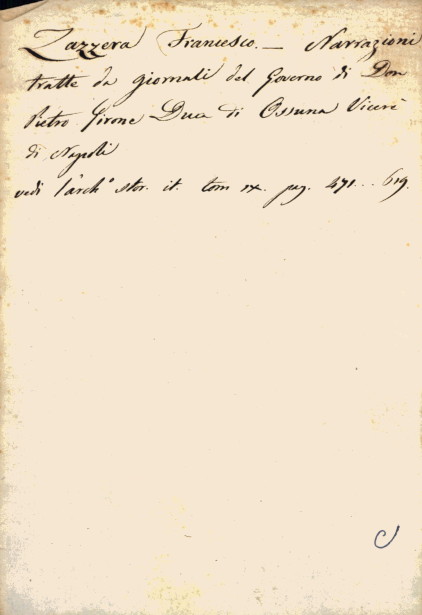 Zazzera Francesco. — Narrazioni
tratte da giornali del Governo di Don
Pietro Girone Duca di Ossuna Vicerè
di Napoli
vedi l'arch.º stor. it. tom IX. pag. 471... 619.